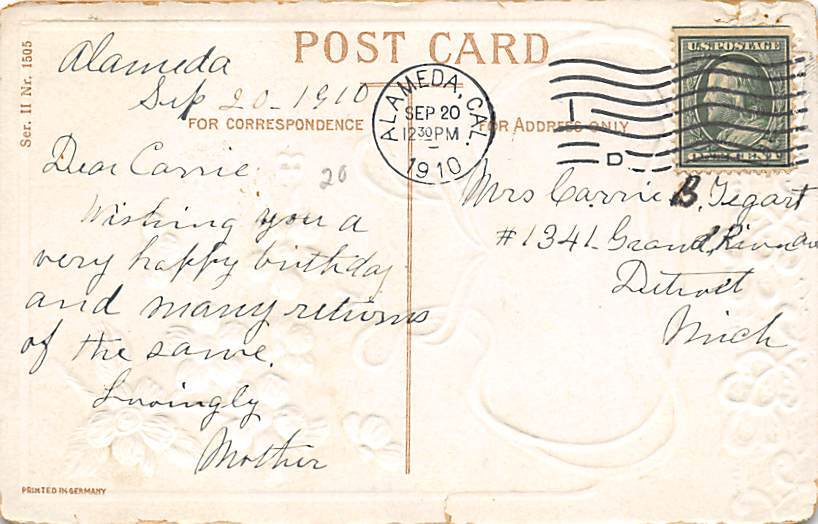 Ser. II Nr. 1505
POST CARD
Alameda
Sep 20 - 1910
FOR CORRESPONDENCE
FOR ADDRESS ONLY
ALAMEDA, CAL.
SEP 20
12 30 PM
1910
D
U.S. POSTAGE
ONE CENT
Dear Carrie
20
Wishing you a
very happy birthday
and many returns
of the same.
Lovingly
Mother
Mrs Carrie B. Tegart
#1341 Grand River Ave
Detroit
Mich
PRINTED IN GERMANY